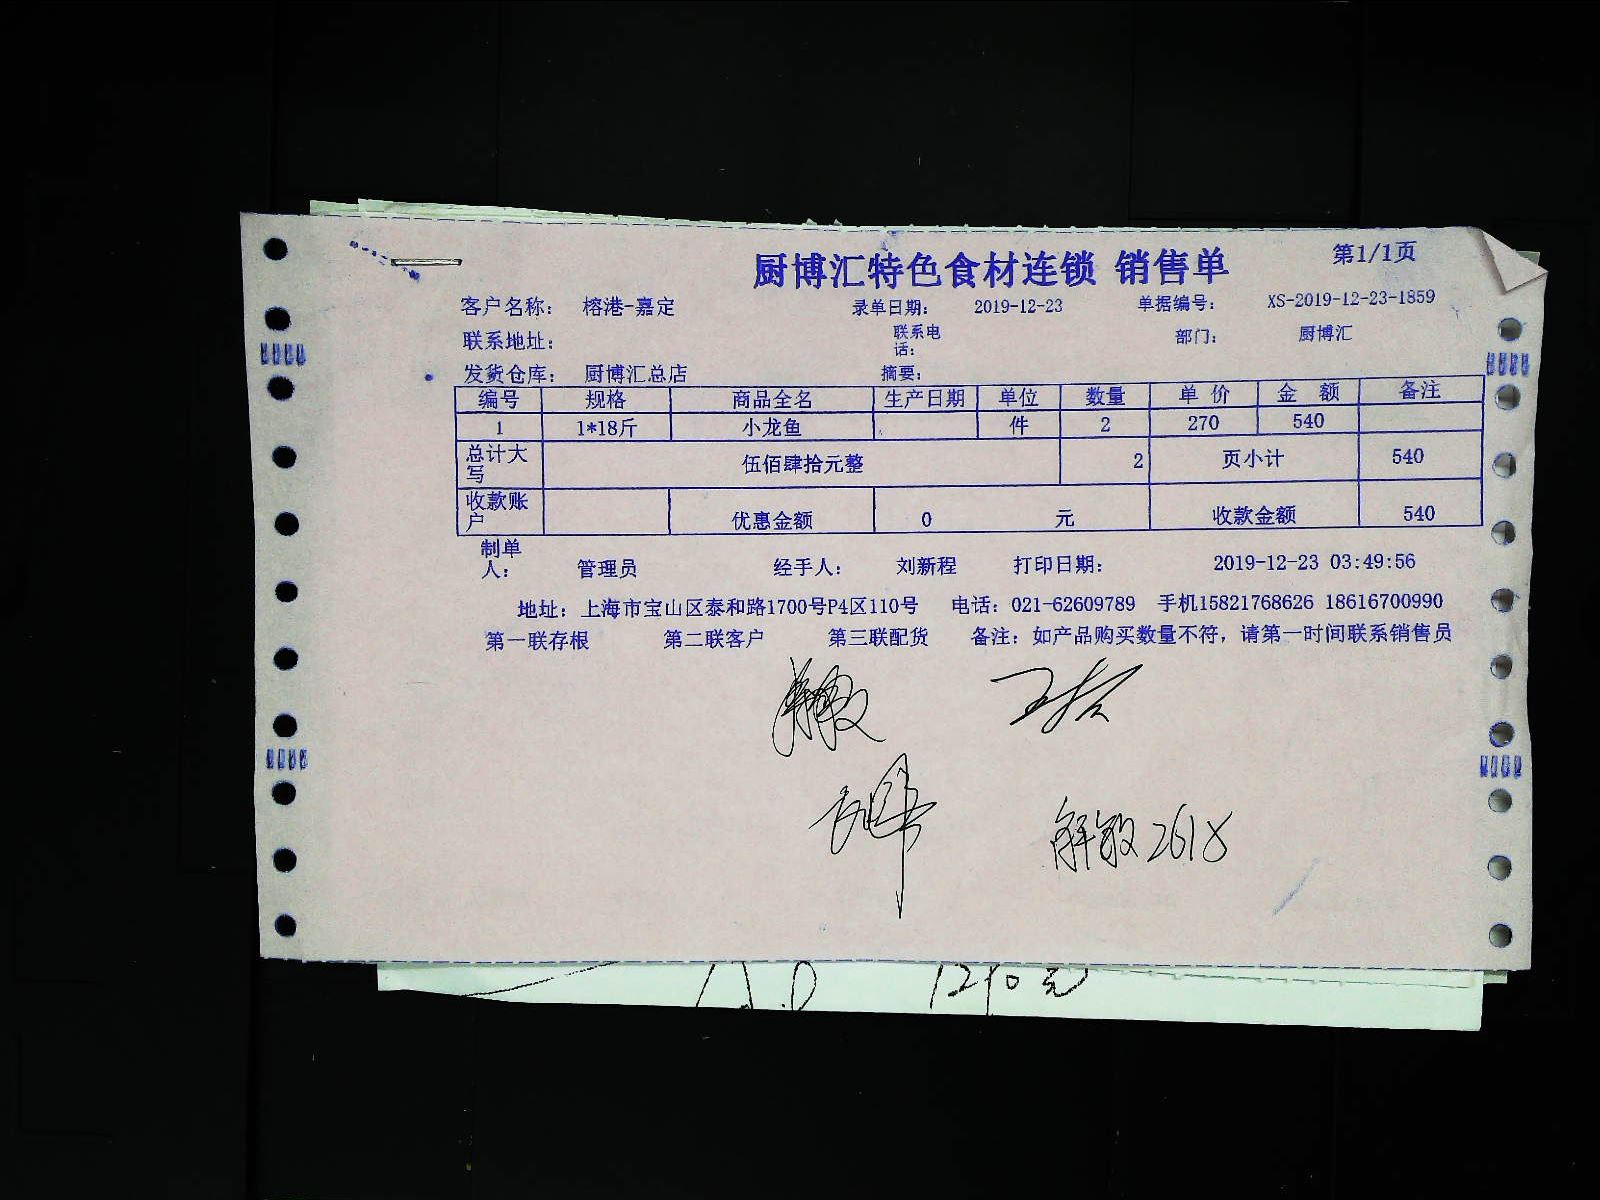 厨博汇特色食材连锁 销售单 第1/1页
客户名称： 榕港-嘉定 录单日期： 2019-12-23 单据编号： XS-2019-12-23-1859
联系地址： 联系电话： 部门： 厨博汇
发货仓库： 厨博汇总店 摘要：
编号 规格 商品全名 生产日期 单位 数量 单价 金额 备注
1 1*18斤 小龙鱼 件 2 270 540
总计大写 伍佰肆拾元整 2 页小计 540
收款账户 优惠金额 0 元 收款金额 540
制单人： 管理员 经手人： 刘新程 打印日期： 2019-12-23 03:49:56
地址：上海市宝山区泰和路1700号P4区110号 电话：021-62609789 手机15821768626 18616700990
第一联存根 第二联客户 第三联配货 备注：如产品购买数量不符，请第一时间联系销售员
解敏 2618